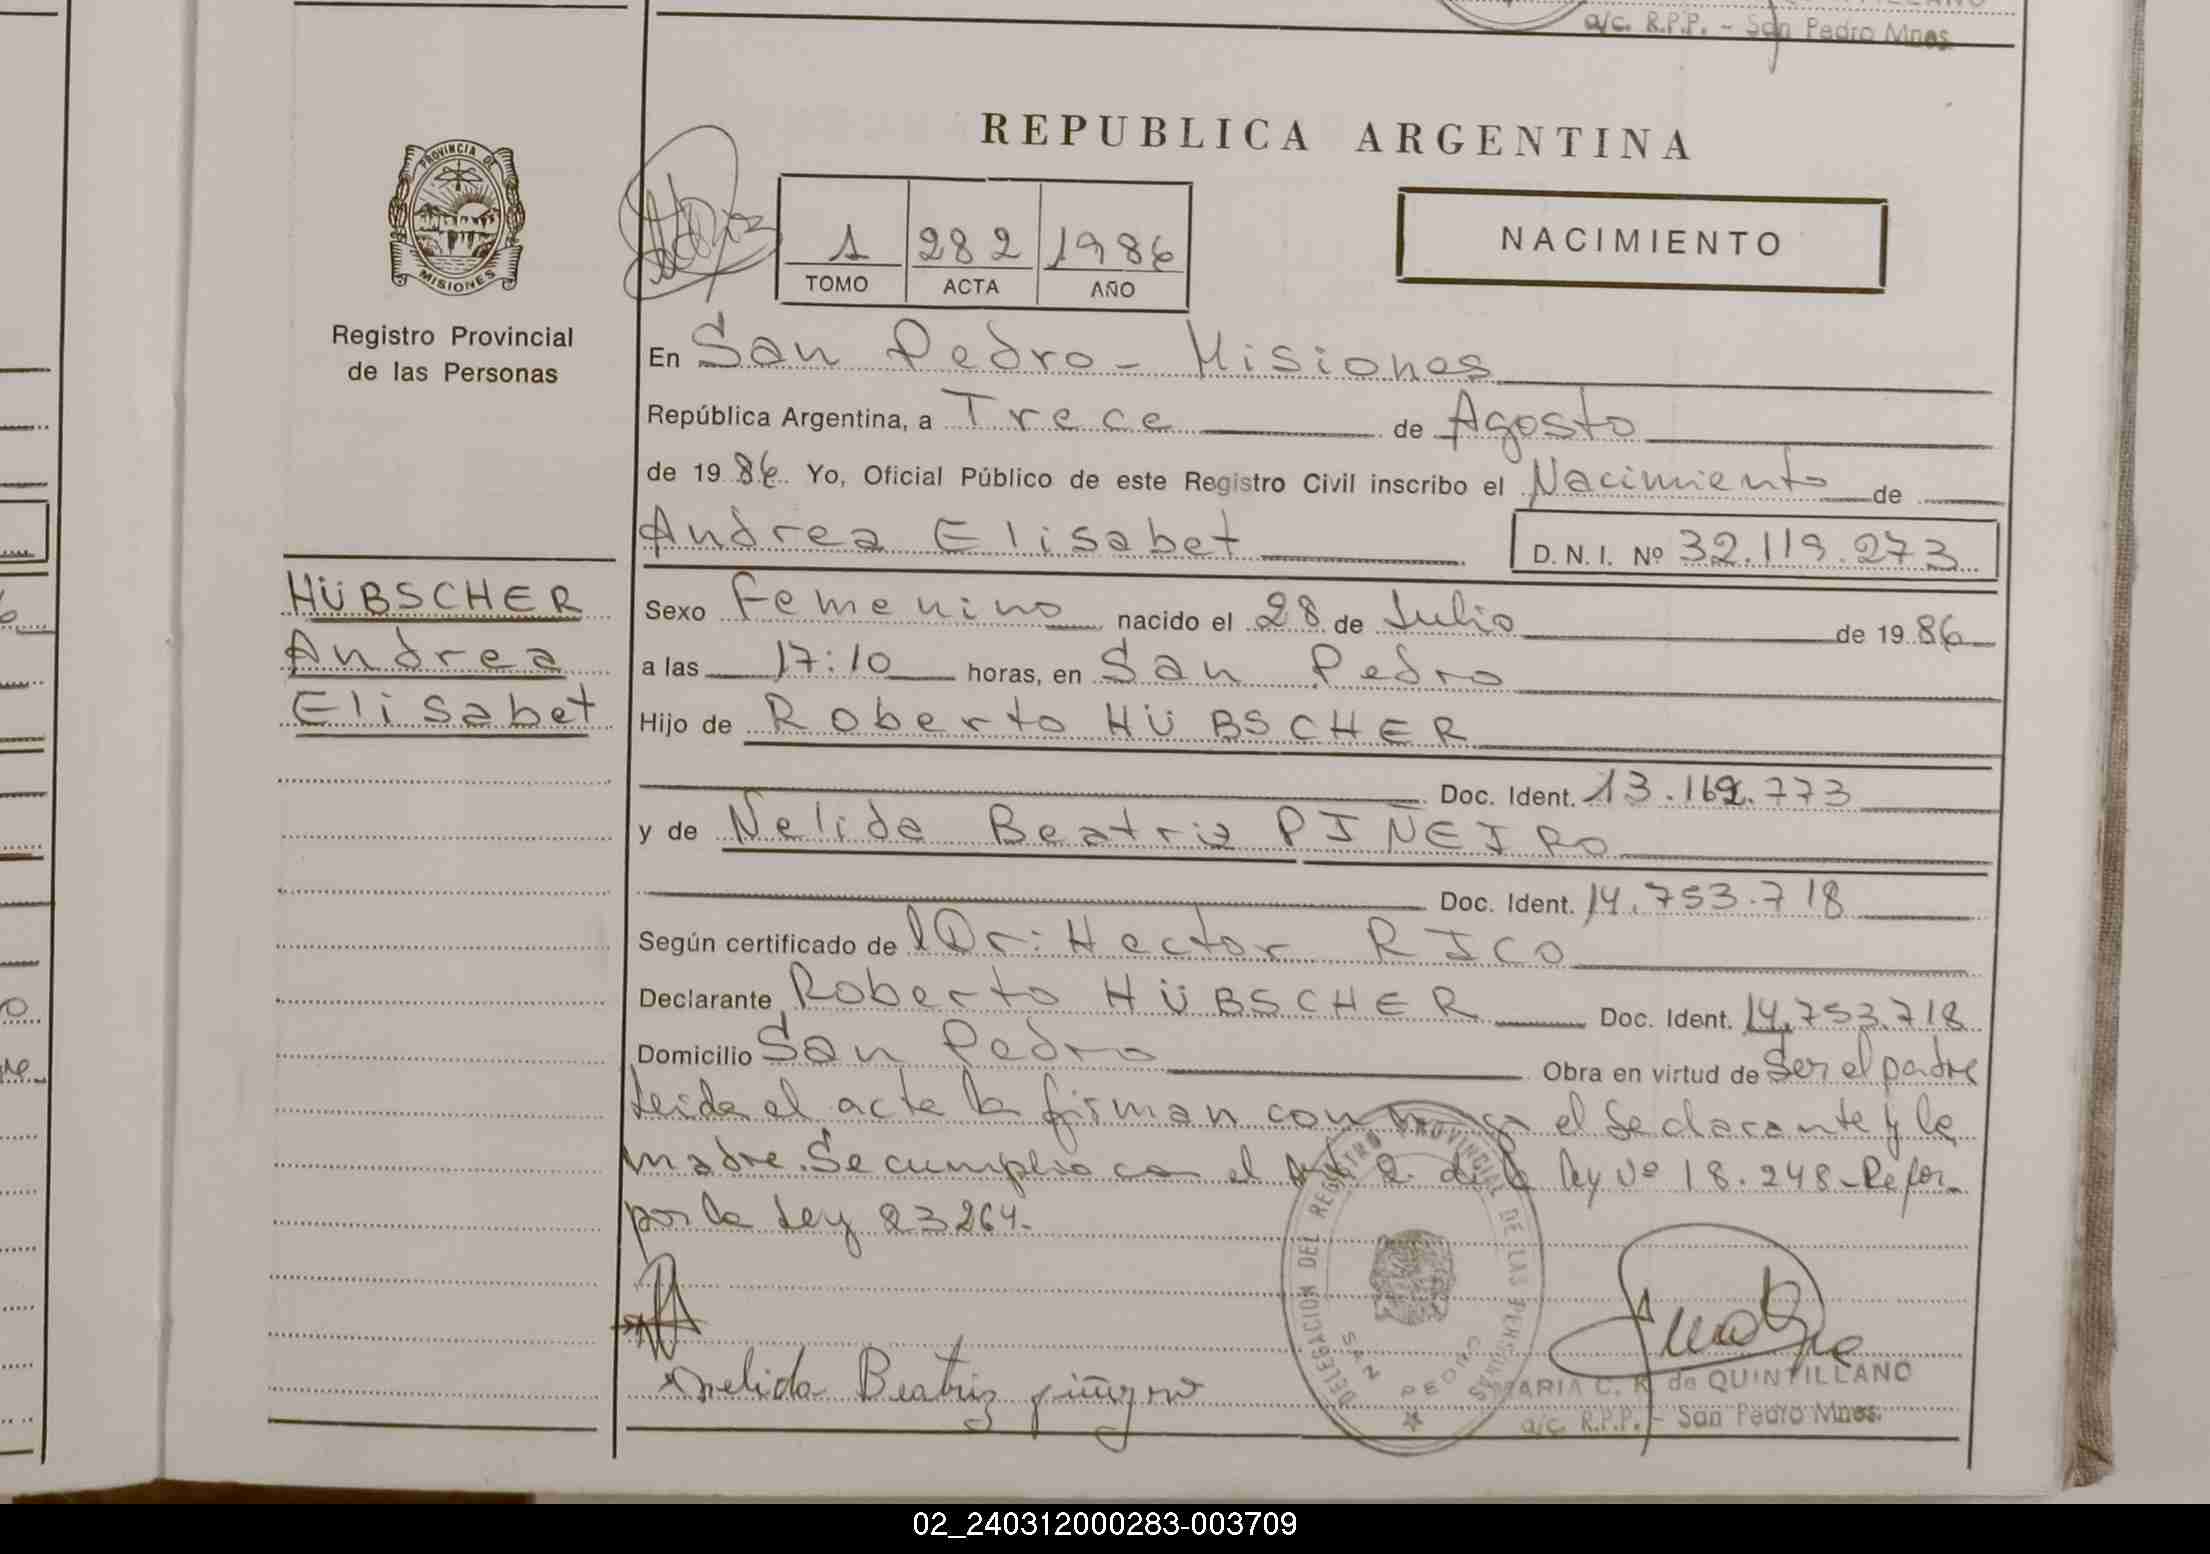 a/c. R.P.P. - San Pedro Mnes.
REPUBLICA ARGENTINA
PROVINCIA DE
MISIONES
1 282 1986
TOMO ACTA AÑO
NACIMIENTO
Registro Provincial
de las Personas
En San Pedro - Misiones
República Argentina, a Trece de Agosto
de 1986. Yo, Oficial Público de este Registro Civil inscribo el Nacimiento de
Andrea Elisabet D. N. I. Nº 32.119.273
HÜBSCHER
Andrea
Elisabet
Sexo Femenino nacido el 28 de Julio de 1986
a las 17:10 horas, en San Pedro
Hijo de Roberto HÜBSCHER
Doc. Ident. 13.162.773
y de Nelida Beatriz PIÑEIRO
Doc. Ident. 14.753.718
Según certificado de l Dr: Hector RICO
Declarante Roberto HÜBSCHER Doc. Ident. 14.753.718
Domicilio San Pedro Obra en virtud de Ser el padre
Leida el acta la firman con migo el declarante y la
madre. Se cumplio con el Art 2 de la ley Nº 18.248 - Refor.
por la Ley 23264.
DELEGACION DEL REGISTRO PROVINCIAL DE LAS PERSONAS
SAN PEDRO
Nelida Beatriz piñeyro
MARIA C. R. de QUINTILLANO
a/c. R.P.P. - San Pedro Mnes.
02_240312000283-003709